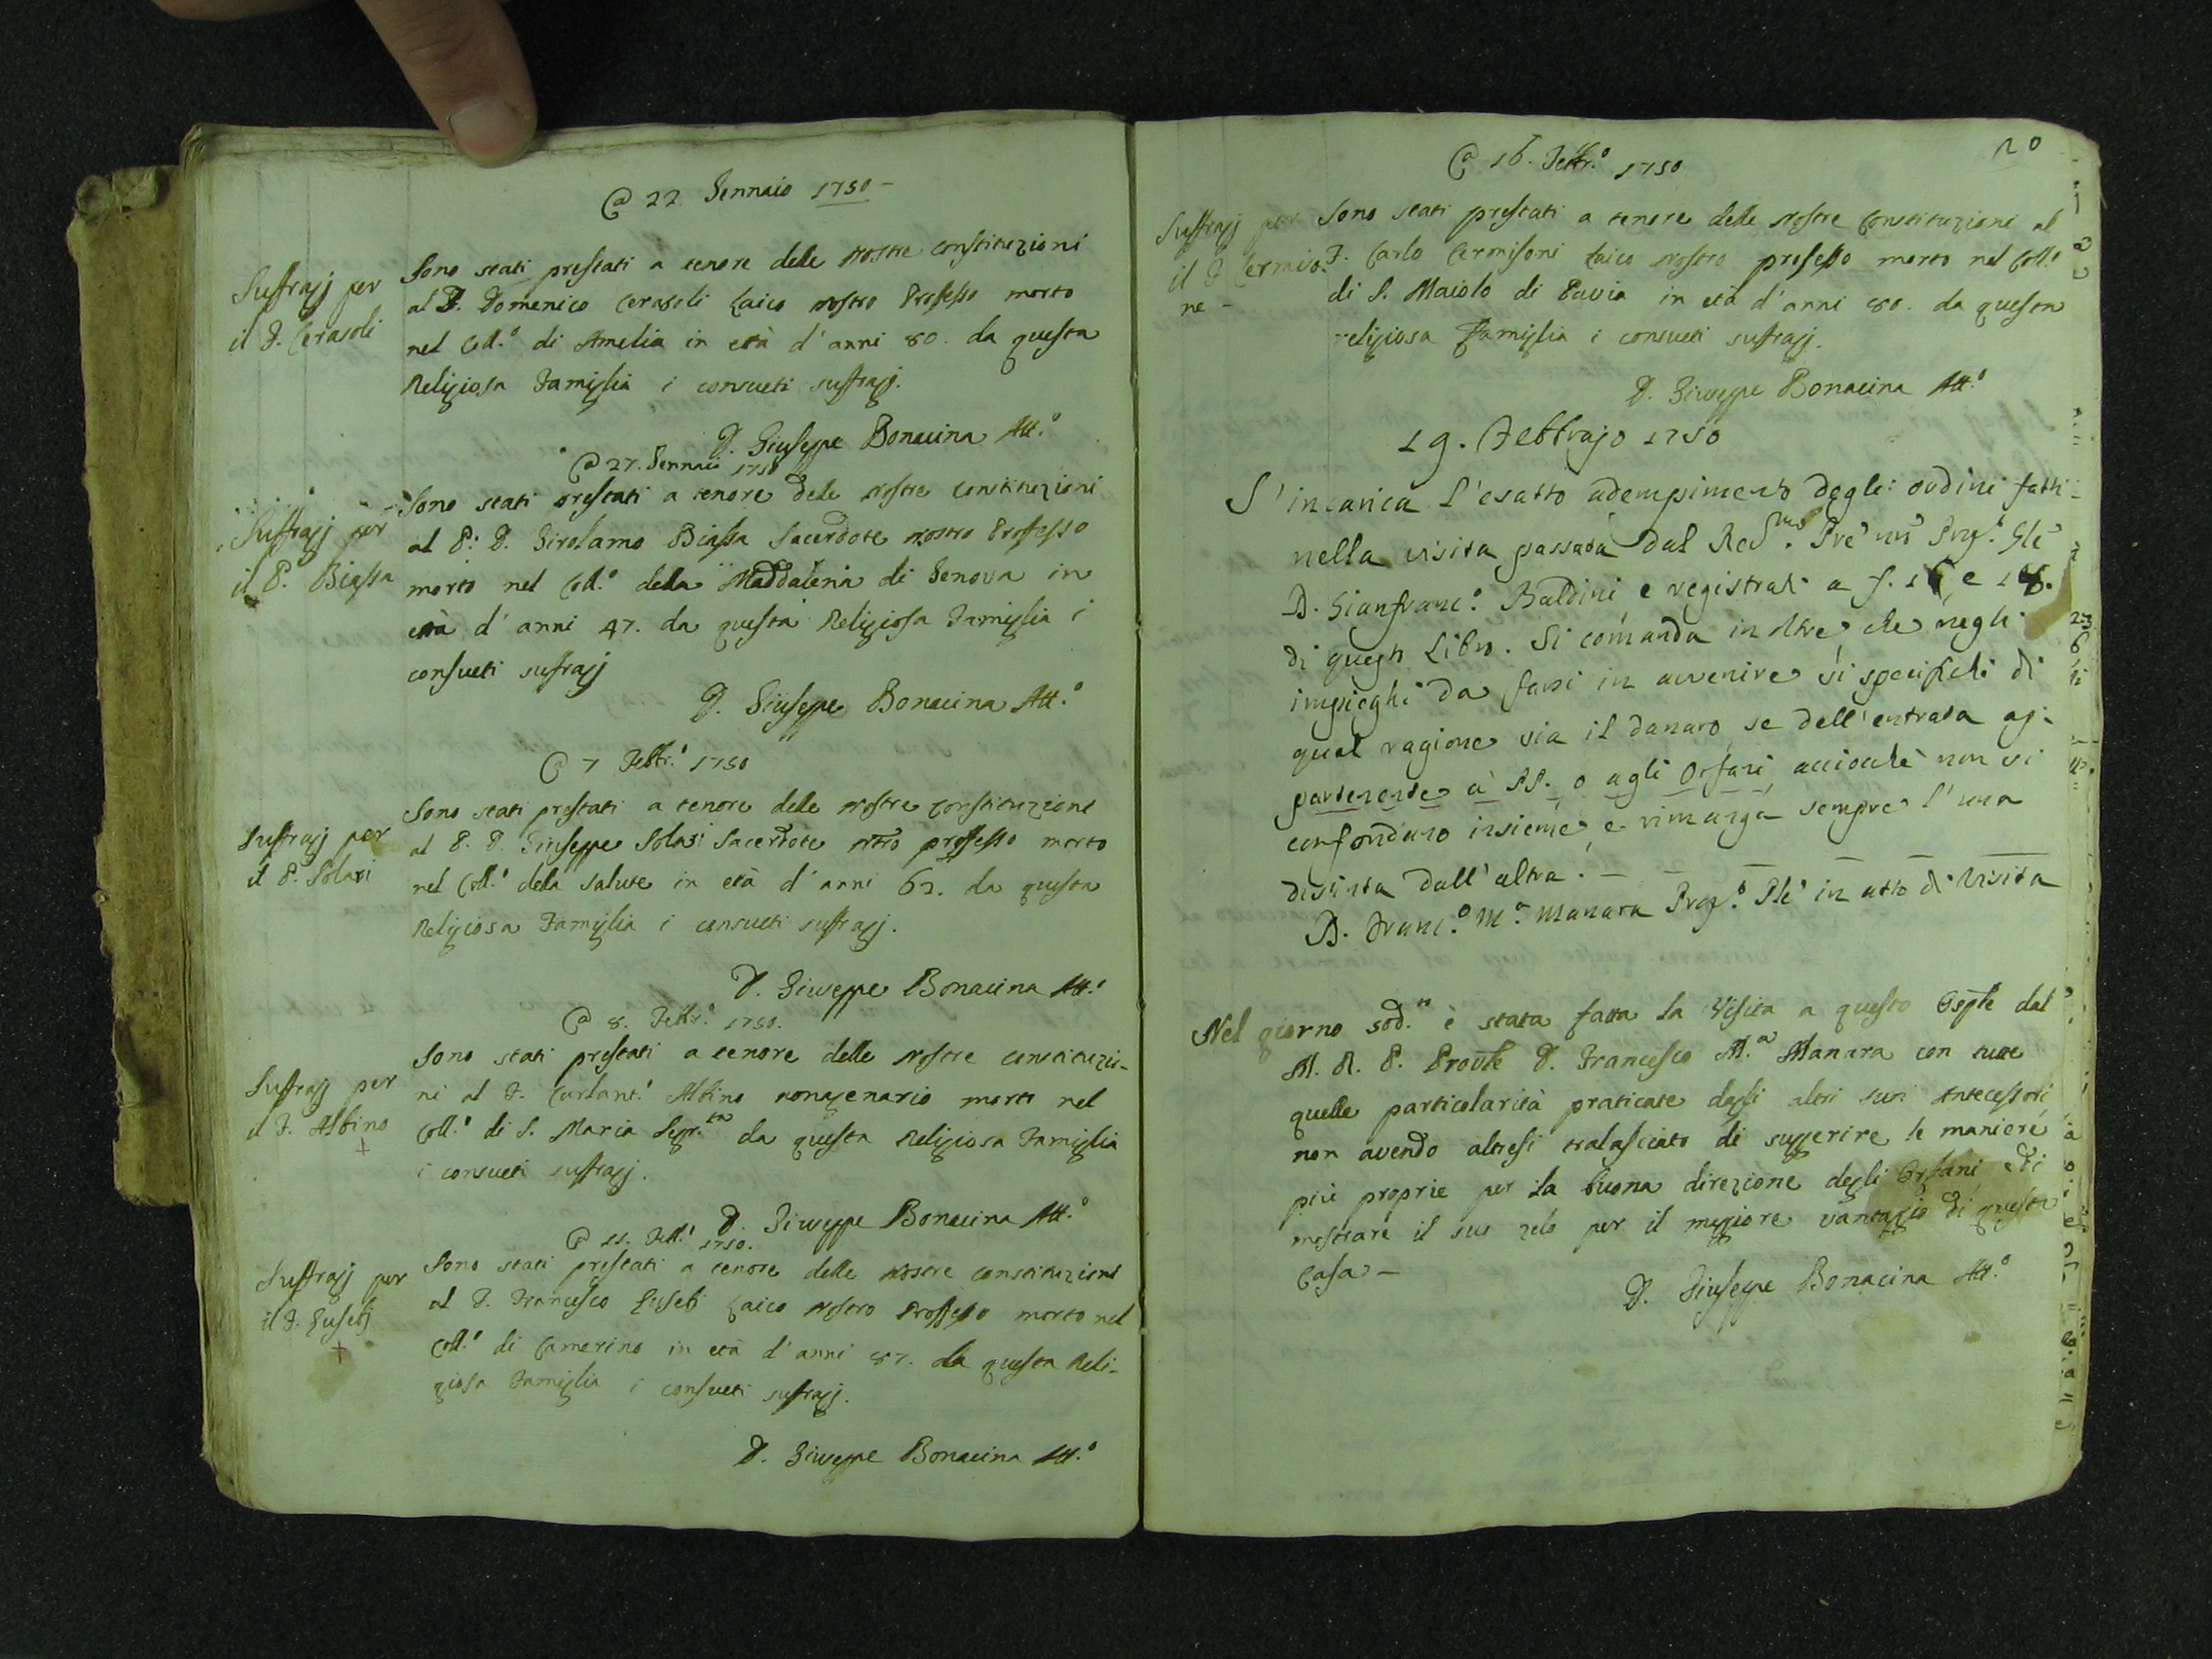 @ 22 Gennaio 1750 -
Suffragj per
il F. Cerasoli
Sono stati prestati a tenore delle nostre constituzioni
al F. Domenico Cerasoli Laico nostro Professo morto
nel Coll.º di Amelia in età d'anni 80. da questa
Religiosa Famiglia i consueti suffragj.
D. Giuseppe Bonacina Att.º
@ 27. Gennaio 1750
Suffragj per
il P. Biassa
Sono stati prestati a tenore dele nostre constituzioni
al P. D. Girolamo Biassa Sacerdote nostro Professo
morto nel Coll.º della Maddalena di Genova in
età d'anni 47. da questa Religiosa Famiglia i
consueti sufragj
D. Giuseppe Bonacina Att.º
@ 7 Febbr.º 1750
Suffragj per
il P. Solari
Sono stati prestati a tenore delle nostre constituzioni
al P. D. Giuseppe Solari Sacerdote nrõ professo morto
nel Coll.º della Salute in età d'anni 62. da questa
Religiosa Famiglia i consueti suffragj.
D. Giuseppe Bonacina Att.º
@ 8. Febbr.º 1750.
Suffragj per
il F. Albino
+
Sono stati prestati a tenore delle nostre constituzio-
ni al F. Carlant.º Albino nonagenario morto nel
Coll.º di S. Maria Segr.ta da questa Religiosa Famiglia
i consueti suffragj.
D. Giuseppe Bonacina Att.º
@ 11. Febb.º 1750.
Suffragj per
il F. Eusebj
+
Sono stati prestati a tenore delle nostre constituzioni
al F. Francesco Eusebi Laico nostro Professo morto nel
Coll.º di Camerino in età d'anni 87. da questa Reli-
giosa Famiglia i consueti suffragj.
D. Giuseppe Bonacina Att.º
20
@ 16. Febbr.º 1750
Suffragj per
il F. Cermiso-
ne -
Sono stati prestati a tenore delle nostre Constituzioni al
F. Carlo Cermisoni Laico nostro professo morto nel Coll.º
di S. Maiolo di Pavia in età d'anni 80. da questa
religiosa Famiglia i consueti suffragj.
D. Giuseppe Bonacina Att.º
19. Febbrajo 1750
S'incarica l'esatto adempimento degli ordini fatti
nella visita passata dal Red.mo Pre nrõ Prep.º Gle
D. Gianfranc.º Baldini e registrati a f. e
di questo Libro. Si comanda inoltre che negli
impieghi da farsi in avvenire si specifichi di
qual ragione sia il danaro, se dell'entrata ap-
partenente a' PP. o agli Orfani, acciocchè non si
confondano insieme, e rimanga sempre l'una
distinta dall'altra. -
D. Franc.º M.a Manara Prep.º Ple in atto di Visita
Nel giorno sod.to è stata fatta la Visita a questo Osple dal
M. R. P. Provle D. Francesco M.a Manara con tutte
quelle particolarità praticate dagli altri suoi Antecessori,
non avendo altresi tralasciato di suggerire le maniere
più proprie per la buona direzione degli Orfani, e di
mostrare il suo zelo per il maggiore vantaggio di questa
Casa -
D. Giuseppe Bonacina Att.º